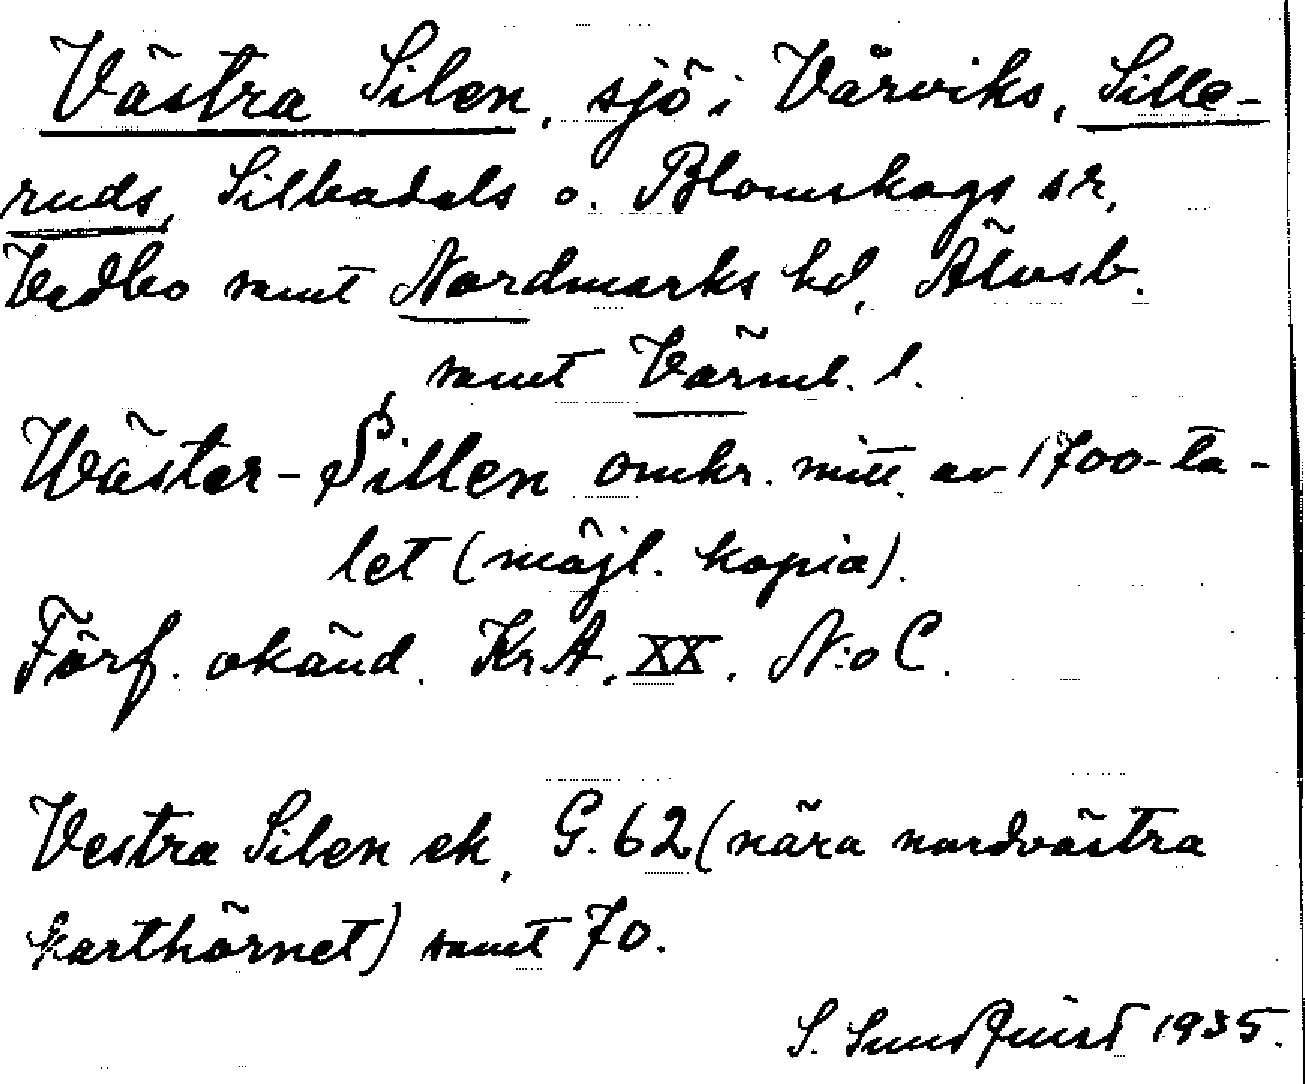 Västra Silen, sjö i Vårviks, Sille-
ruds, Silbodals o. Blomskogs sr,
Vedbo samt Nordmarks hd, Älvsb.
samt Värml. l.
Wäster-Sillen omkr. mitt. av 1700-ta-
let (möjl. kopia).
Förf. okänd. KrA. XX. N:o C.
Vestra Silen ek, G. 62 (nära nordvästra
karthörnet) samt 70.
S. Sundquist 1935.